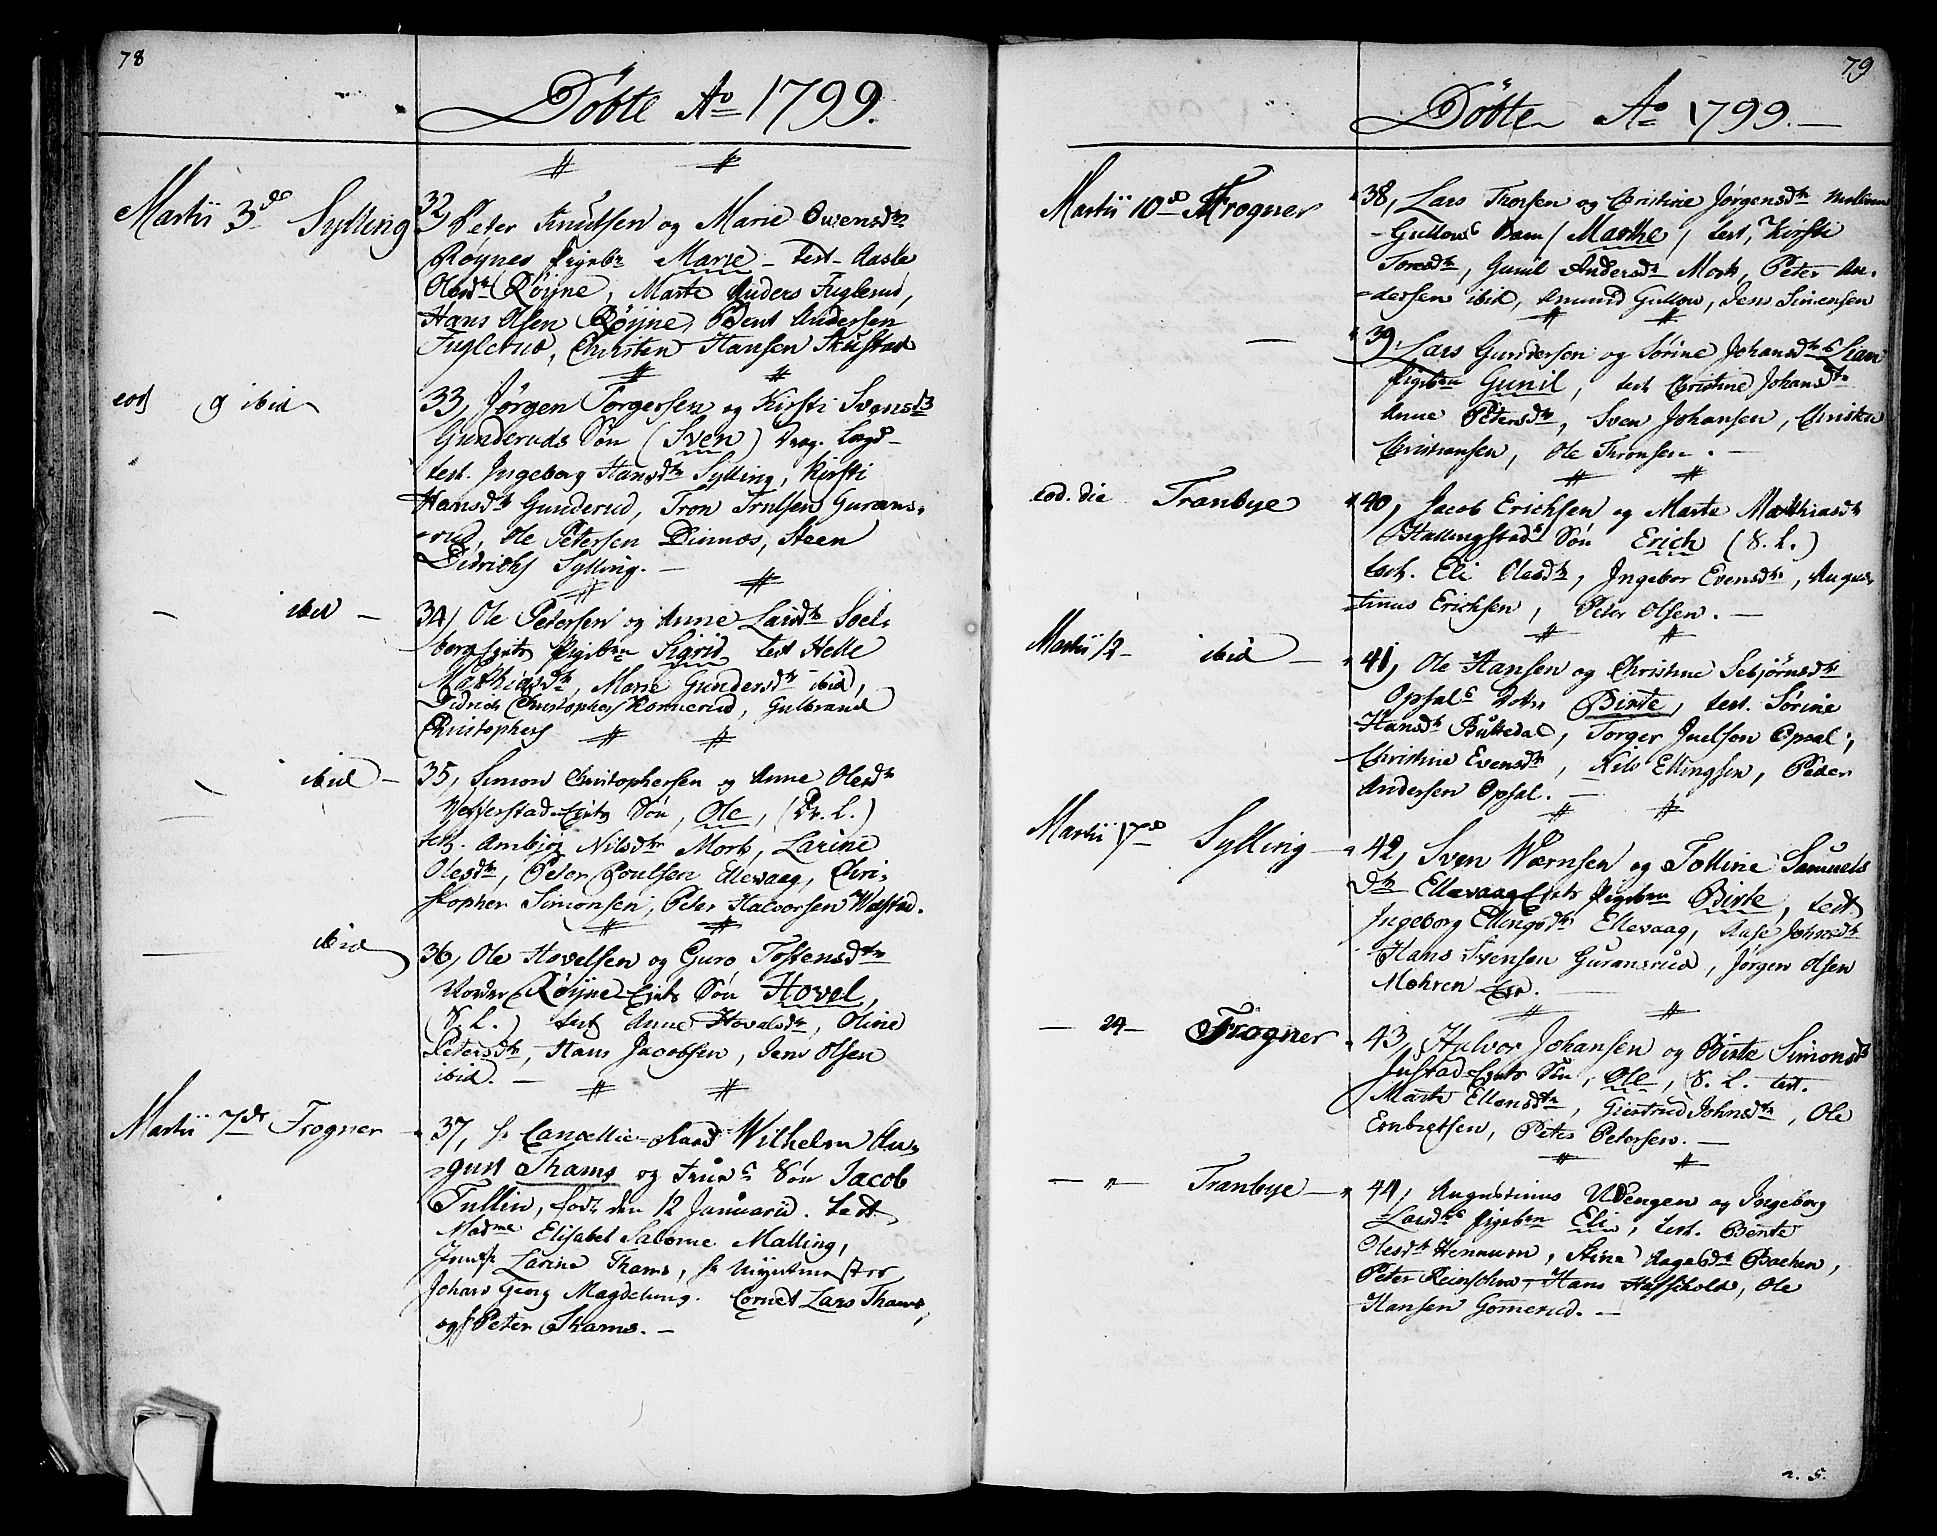 78
Döbte Ao 1799.
Martii 3de Sylling
32, Peter Knutsen og Marie Owensdtr
Røynes Pigebn Marie - test. Aasle
Olesdtr Røijne, Marte Anders Fuglerud,
Hans Olsen Røijne, Bent Andersen
Fuglerud, Christen Hansen Skustad
eod ibid
33, Jørgen Torgersen og Kirsti Svensd
Gunderuds Søn (Sven)
test. Ingeborg Hansdtr Sylling, Kirsti
Hansdtr Gunderud, Tron Trulsen Gurans-
rud, Ole Petersen Dimnos, Steen
Didrichs Sylling. -
- ibid -
34, Ole Petersen og Anne Larsdtr Soel-
berg Pigebn Sigrid test Helle
Mathiasdtr, Marie Gundersdtr ibid,
Didrich Christophers Homerud, Gulbrand
Christophers
- ibid -
35, Simon Christophersen og Anne Olesdtr
Søn, Ole, (Dr. L.)
test. Ambjør Nilsdtr Mork, Larine
Olesdtr, Peter Poulsen Ellevaag, Chri-
stopher Simonsen, Peter Halvorsen Wæstad.
- ibid
36, Ole Hovelsen og Guro Tostensdtr
Røijne Søn Hovel,
(S. L.) test Anne Hovelsdtr, Oline
Petersdtr, Hans Jacobsen, Jens Olsen
ibid. -
Martii 7de Frogner
37, Hr Cancellie-Raad Wilhelm Au-
gust Thams og Frue Søn Jacob
Tullin, født den 12 Januarii. test.
Madme Elisabet Salome Malling,
Jomfr Larine Thams, Hr
Johan Georg Magdelung. Cornet Lars Thams,
og Peter Thams. -
79
Döbte Ao 1799. -
Martii 10de Frogner
38, Lars Thorsen og Christine Jørgensdtr
Gullous Barn (Marthe) test, Kirsti
Toresdtr, Gunil Andersdtr Mork, Peter An-
dersen ibid, Amund Gullow, Jens Simensen
-
39, Lars Gundersen og Sørine Johansdtr Lian
Pigebn Gunil, test Christine Johansdtr
Anne Petersdtr, Sven Johansen, Christen
Christiansen, Ole Thronsen. -
eod. die Tranbye
40, Jacob Erichsen og Marte Mathiasdtr
Hallingstads Søn Erich (S. L.)
test. Eli Olesdtr, Ingebor Evensdtr, Augus-
tinus Erichsen, Peter Olsen. -
Martii 12 - ibid -
41, Ole Hansen og Christine Sebjørnsdtr
Opsals Dotr Birte, test. Sørine
Hansdtr Buttedal, Torger Juelsen Opsal,
Christine Evensdtr, Nils Ellingsen, Peder
Andersen Opsal. -
Martii 17de Sylling -
42, Sven Wærnsen og Tolline Samuels
dtr Ellevaag Pigebn Birte, test
Ingeborg Ellingsdtr Ellevaag, Aase Johnsdtr
Hans Svensen Guransrud, Jørgen Olsen
Mohren
- 24 - Frogner
43, Halvor Johansen og Birte Simonsd
Justad Søn, Ole, S. L. test.
Marte Ellensdtr, Giertrud Johnsdtr, Ole
Embretsen, Peter Petersen. -
- " - Tranbye -
44, Augustinus Uvengen og Ingeborg
Larsdtrs Pigebn Eli, test. Bente
Olesdtr Hennum, Stine Aagesdtr Bachen,
Peter Reinskou, Hans Haskold, Ole
Hansen Gomerud. -
n. 5.